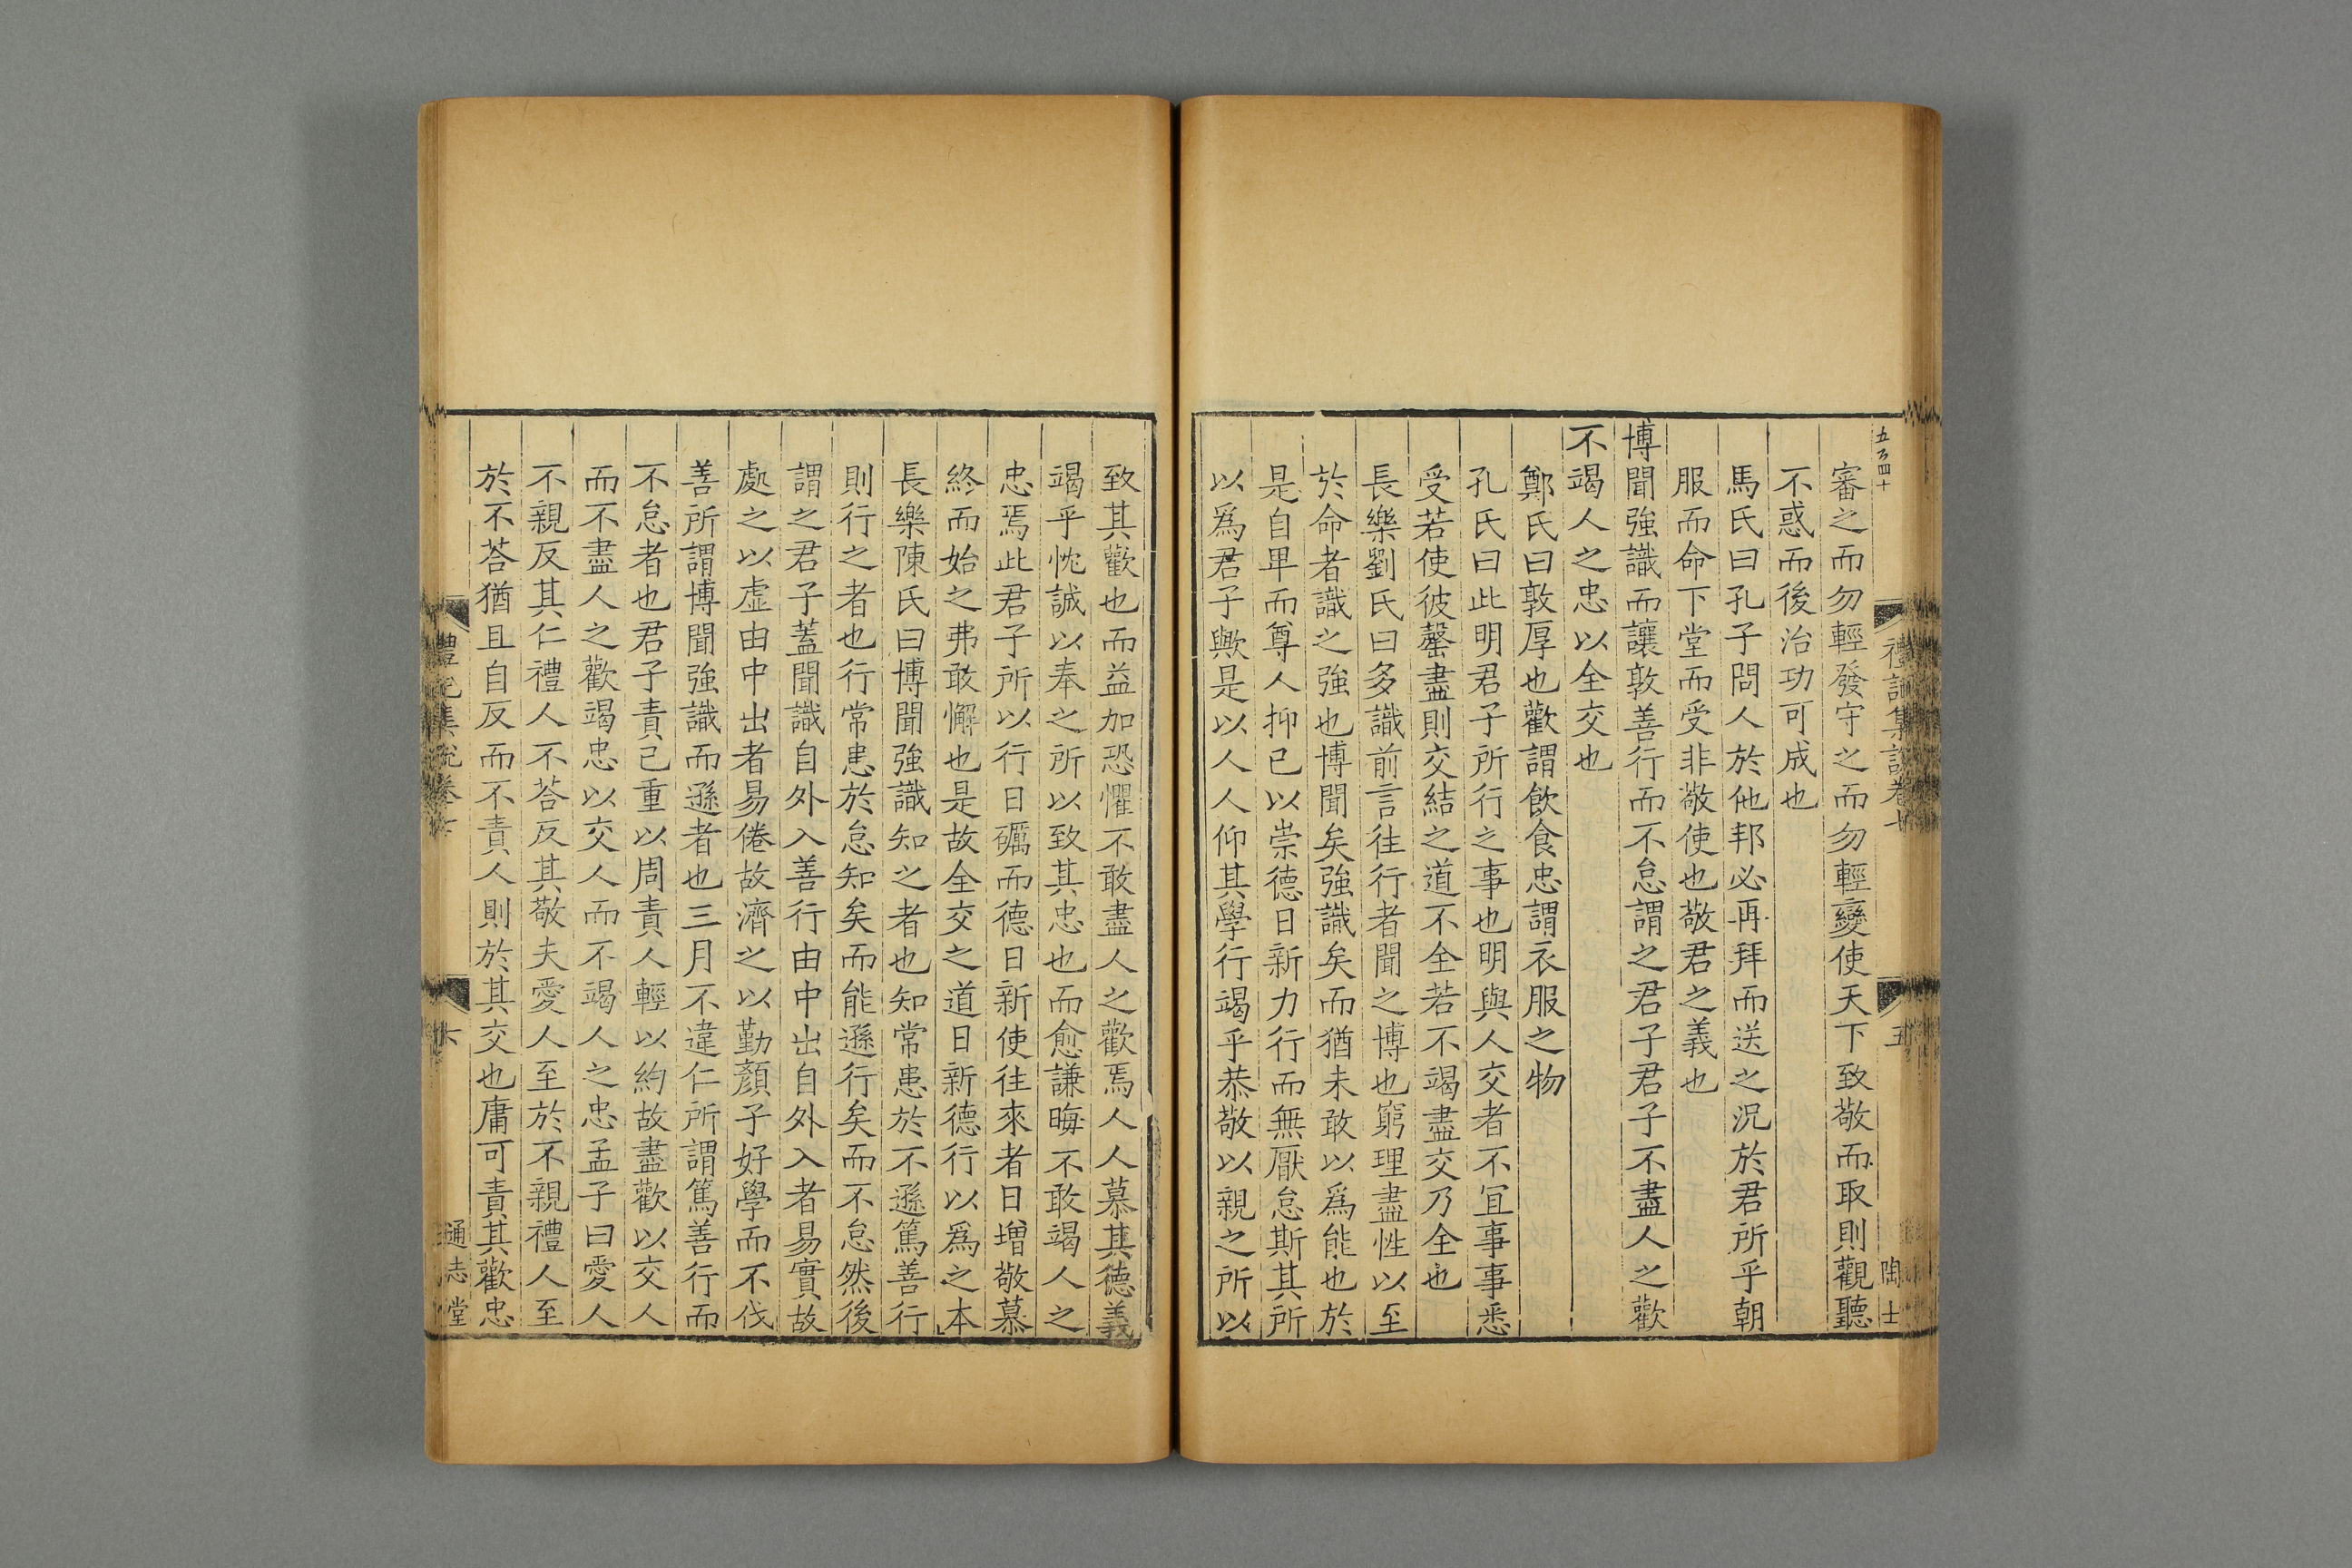 五百四十
審之而勿輕發守之而勿輕變使天下致敬而取則觀聽
不惑而後治功可成也
馬氏曰孔子問人於他邦必再拜而送之況於君所乎朝
服而命下堂而受非敬使也敬君之義也
博聞強識而讓敦善行而不怠謂之君子君子不盡人之歡
不竭人之忠以全交也
鄭氏曰敦厚也歡謂飲食忠謂衣服之物
孔氏曰此明君子所行之事也明與人交者不宜事事悉
受若使彼罄盡則交結之道不全若不竭盡交乃全也
長樂劉氏曰多識前言往行者聞之博也窮理盡性以至
於命者識之強也博聞矣強識矣而猶未敢以為能也於
是自卑而尊人抑己以崇德日新力行而無厭怠斯其所
以爲君子歟是以人人仰其學行竭乎恭敬以親之所以
致其歡也而益加恐懼不敢盡人之歡焉人人慕其德義
竭乎忱誠以奉之所以致其忠也而愈謙晦不敢竭人之
忠焉此君子所以行日礪而德日新使往來者日增敬慕
終而始之弗敢懈也是故全交之道日新德行以爲之本
長樂陳氏曰博聞強識知之者也知常患於不遜篤善行
則行之者也行常患於怠知矣而能遜行矣而不怠然後
謂之君子蓋聞識自外入善行由中出自外入者易實故
處之以虛由中出者易倦故濟之以勤顏子好學而不伐
善所謂博聞強識而遜者也三月不違仁所謂篤善行而
不怠者也君子責己重以周責人輕以約故盡歡以交人
而不盡人之歡竭忠以交人而不竭人之忠孟子曰愛人
不親反其仁禮人不荅反其敬夫愛人至於不親禮人至
於不荅猶且自反而不責人則於其交也庸可責其歡忠
禮記集說卷七
五
陶士
通志堂